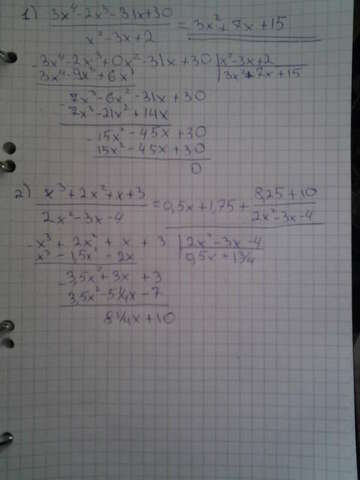 1) 3x⁴-2x³-31x+30 / x²-3x+2 = 3x²+7x+15
-3x⁴-2x³+0x²-31x+30 | x²-3x+2
3x⁴-9x³+6x² | 3x²+7x+15
-7x³-6x²-31x+30
7x³-21x²+14x
-15x²-45x+30
15x²-45x+30
0
2) x³+2x²+x+3 / 2x²-3x-4 = 0,5x+1,75+ 8,25+10 / 2x²-3x-4
-x³+2x²+x+3 | 2x²-3x-4
x³-1,5x²-2x | 0,5x+1 3/4
-3,5x²+3x+3
3,5x²-5 1/4x-7
8 1/4x+10